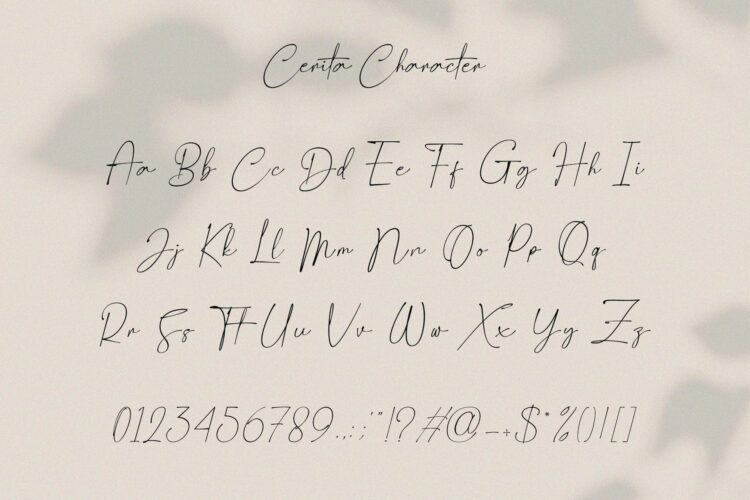 Cerita Character
Aa Bb Cc Dd Ee Ff Gg Hh Ii
Jj Kk Ll Mm Nn Oo Pp Qq
Rr Ss Tt Uu Vv Ww Xx Yy Zz
0123456789.,:;'"!?#@-+$*%()/[]